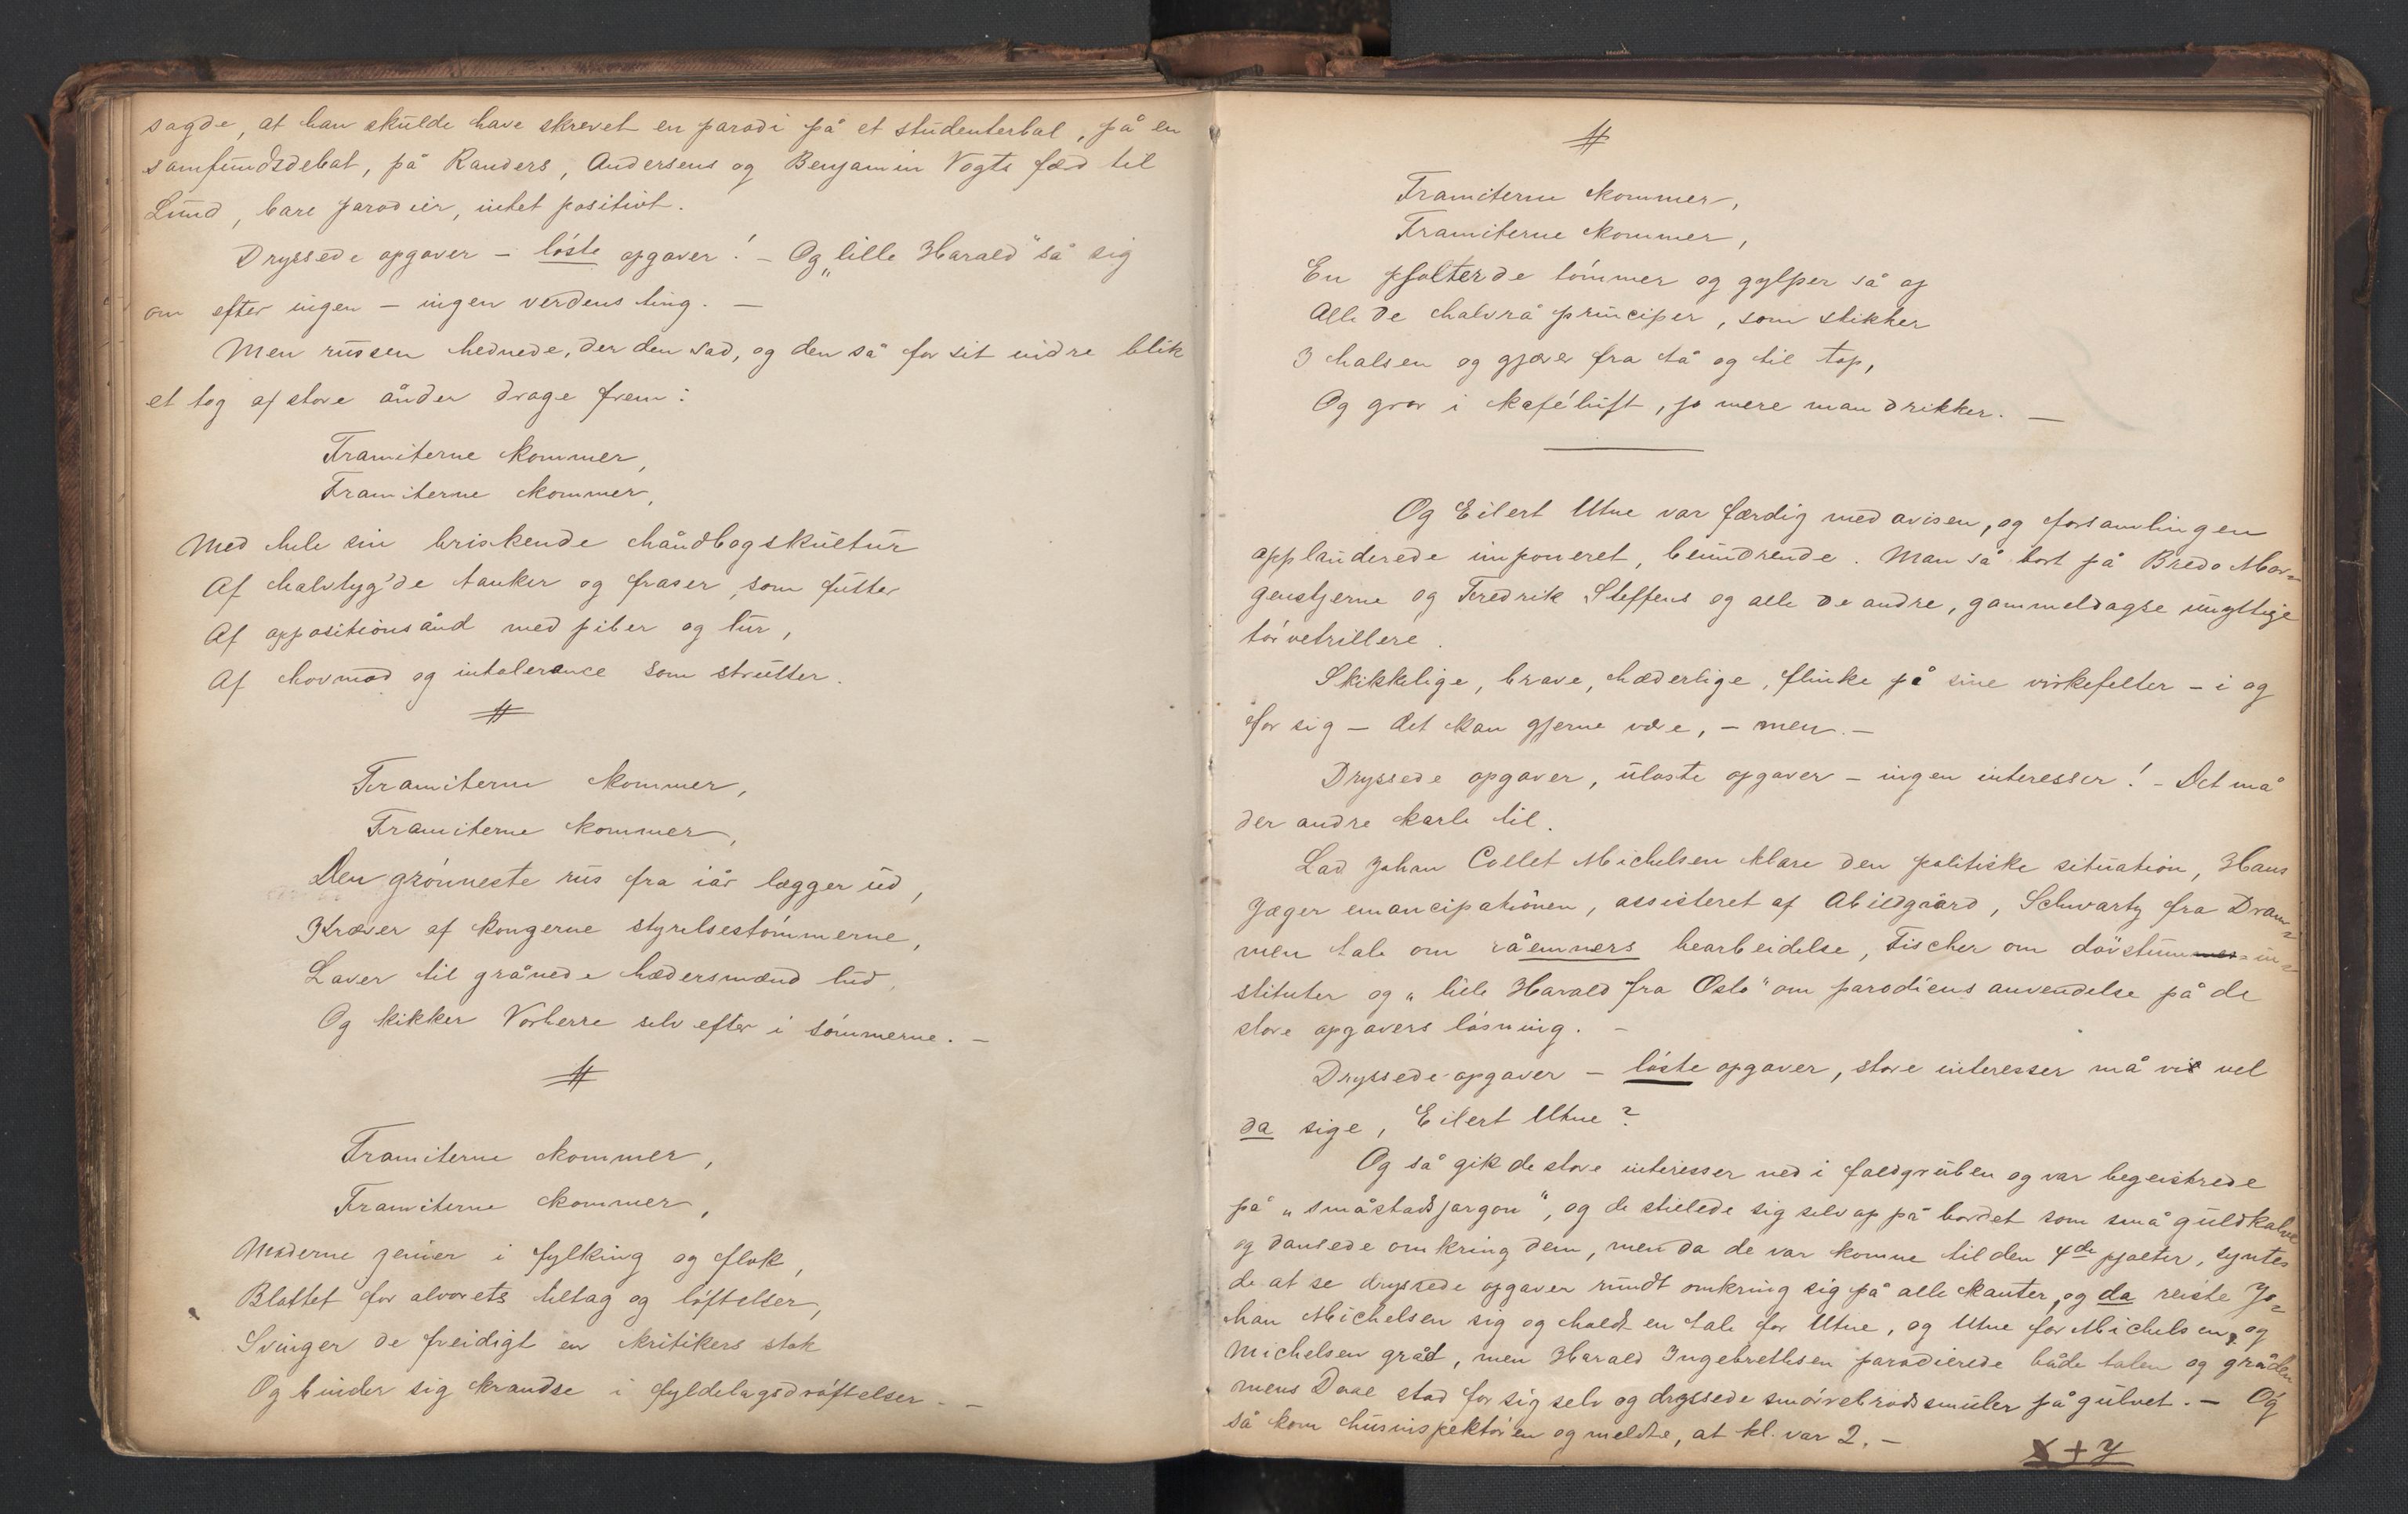 sagde, at han skulde have skrevet en parodi på et studenterbal, på en
samfundsdebat, på Randers, Andersens og Benjamin Vogts færd til
Lund, bare parodier, intet positivt.
Dryssede opgaver – løste opgaver! – Og „lille Harald“ så sig
om efter ingen – ingen verdens ting. –
Men russen hednede, der den sad, og den så for sit indre blik
et tog af store ånder drage frem:
Framiterne kommer,
Framiterne kommer,
Med hele sin briskende håndbogskultur
Af halvtyg'de tanker og fraser, som futter
Af oppositionsånd med piber og lur,
Af hovmod og intolerance som strutter.
#
Framiterne kommer,
Framiterne kommer,
Den grønneste rus fra iår lægger ud,
Kræver af kongerne styrelsestømmerne,
Laver til grånede hædersmænd lud,
Og kikker Vorherre selv efter i sømmerne. –
#
Framiterne kommer,
Framiterne kommer,
Moderne genier i fylking og flok,
Blottet for alvorets tiltag og løftelser,
Svinger de freidigt en kritikers stok
Og binder sig krandse i fyldelagsdrøftelser. –
#
Framiterne kommer,
Framiterne kommer,
En pjolter de tømmer og gylper så op
Alle de halvrå principer, som stikker
I halsen og gjærer fra tå og til top,
Og gror i kaféluft, jo mere man drikker. –
Og Eilert Utne var færdig med avisen, og forsamlingen
applauderede imponeret, beundrende. Man så bort på Bredo Mor=
genstjerne og Fredrik Steffens og alle de andre, gammeldagse unyttige
tørvetrillere.
Skikkelige, brave, hæderlige, flinke på sine virkefelter – i og
for sig – det kan gjerne være, – men. –
Dryssede opgaver, uløste opgaver – ingen interesser! – Det må
der andre karle til.
Lad Johan Collet Michelsen klare den politiske situation, Hans
Jæger emancipationen, assisteret af Abildgaard, Schwartz fra Dram=
men tale om råemners bearbeidelse, Fischer om døvstumme=in=
stituter og „lille Harald fra Oslo“ om parodiens anvendelse på de
store opgavers løsning. –
Dryssede opgaver – løste opgaver, store interesser må vi vel
da sige, Eilert Utne?
Og så gik de store interesser ned i faldgruben og var begeistrede
på „småstadsjargon“, og de stillede sig selv op på bordet som små guldkalve
og dansede omkring dem, men da de var komne til den 4de pjolter, syntes
de at se dryssede opgaver rundt omkring sig på alle kanter, og da reiste Jo=
han Michelsen sig og holdt en tale for Utne, og Utne for Michelsen, og
Michelsen gråd, men Harald Ingebrethsen parodierede både talen og gråden
mens Daae stod for sig selv og dryssede smørrebrødssmuler på gulvet. – Og
så kom husinspektøren og meldte, at kl. var 2. –
X + Y